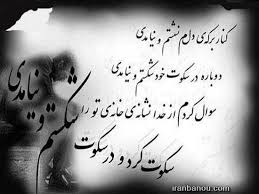 کنار برکه‌ی دلم نشستم و نیامدی
دوباره در سکوت خود شکستم و نیامدی
سوال کردم از خدا نشانه‌ی خانه‌ی تو را
سکوت کرد و در سکوت
شکستم و نیامدی
iranbanou.com